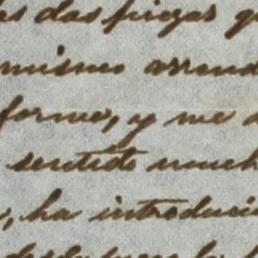 es das piezas q
mismo arrend
forme, y me a
sentido much
, ha introduci